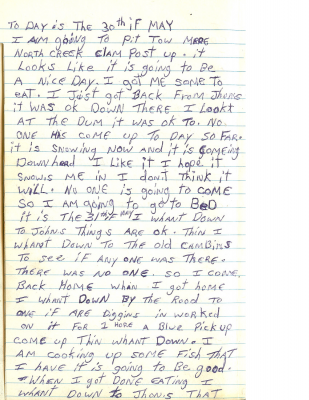 TO DAY is THE 30th iF MAY
I AM gOiNg TO PiT TOW MERE
NORTH CREEK CLAM POST UP. iT
LOOKS LiKE iT is gOiNg TO BE
A NiCE DAY. I gOT ME SOME TO
EAT. I JUST gOT BACK FROM JHONS
iT WAS OK DOWN THERE I LOOKT
AT THE DUM iT WAS OK TO. NO
ONE HAS COME UP TO DAY SO FAR.
iT is SNOWiNg NOW AND iT is COMEiNg
DOWN HEAD I LiKE iT I HOPE iT
SNOWS ME iN I DONT THiNK iT
WiLL. NO ONE is gOiNg TO COME
SO I AM gOiNg TO gO TO BED
iT is THE 31st MAY I WHANT DOWN
TO JOHNS THiNgS ARE OK. THiN I
WHANT DOWN TO THE OLD CAMBiNS
TO SEE iF ANY ONE WAS THERE.
THERE WAS NO ONE. SO I COME
BACK HOME WHEN I gOT HOME
I WHANT DOWN BY THE ROOD TO
ONE iF ARE DiggiNS iN WORKED
ON iT FOR 1 HORE A BLUE PiCK UP
COME UP THiN WHANT DOWN. I
AM COOKiNg UP SOME FiSH THAT
I HAVE iT is gOiNg TO BE gOOD.
WHEN I gOT DONE EATiNg I
WHANT DOWN TO JHONiS THAT